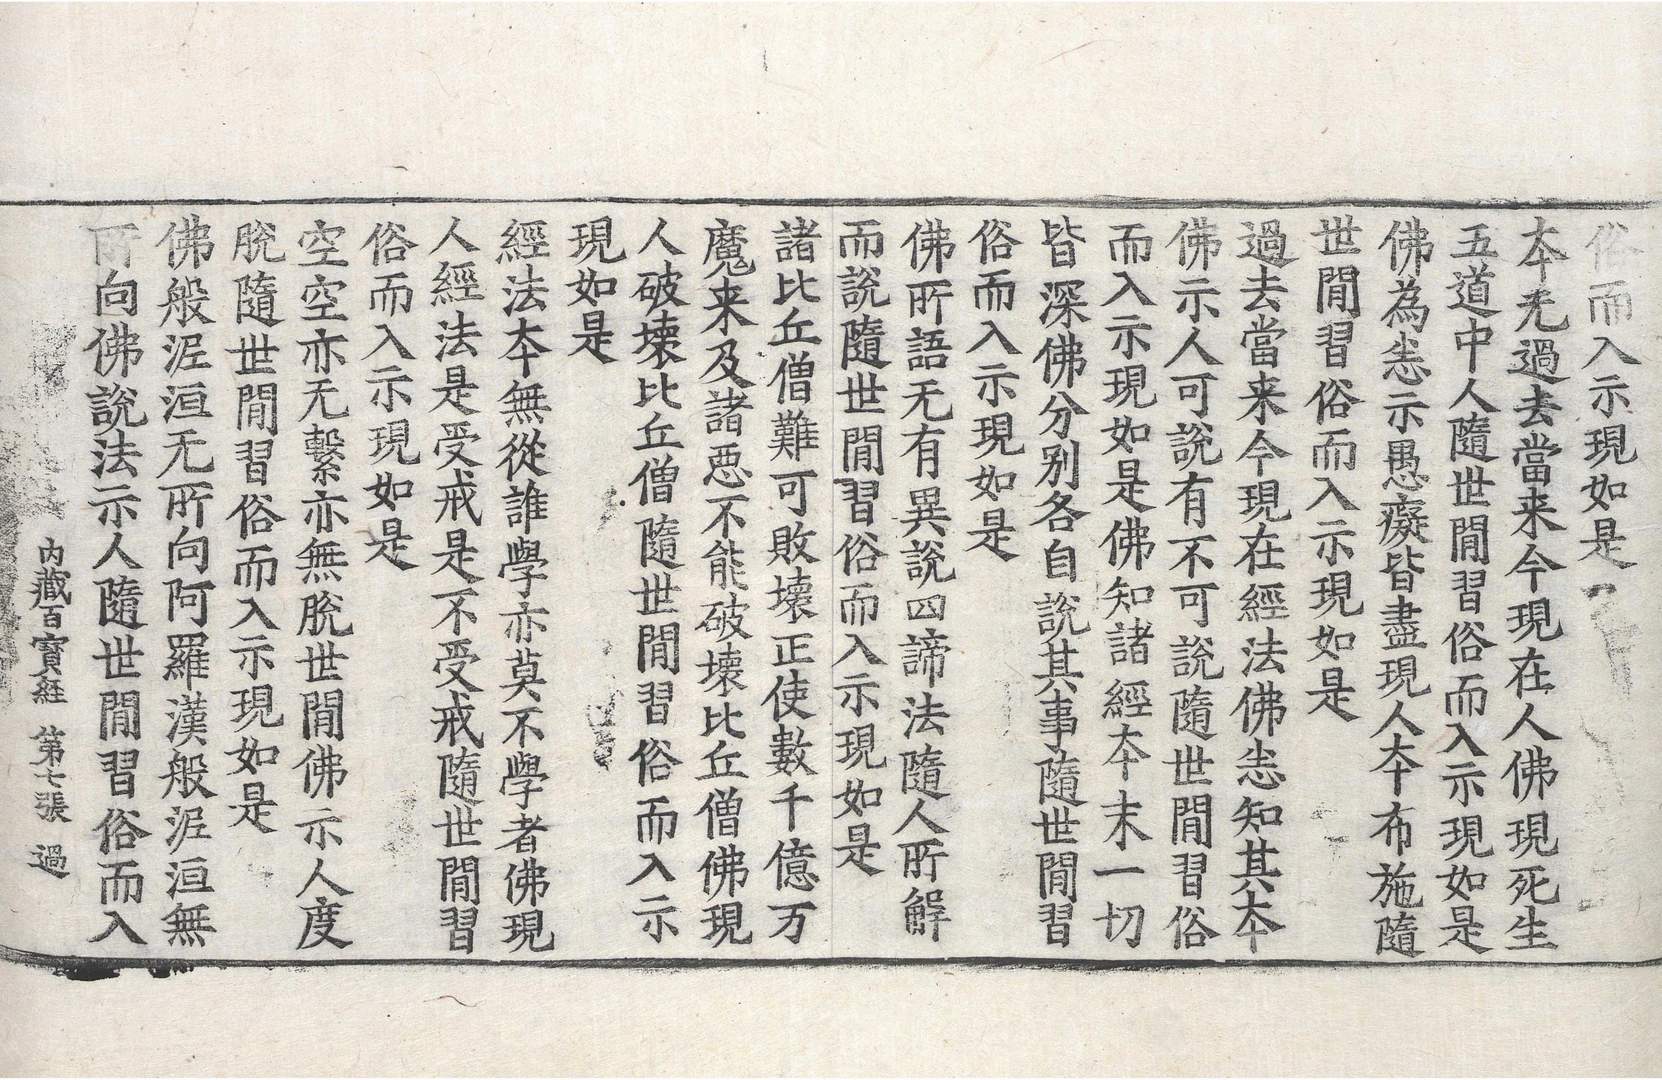 俗而入示現如是
本无過去當来今現在人佛現死生
五道中人隨世閒習俗而入示現如是
佛為恙示愚癡皆盡現人本布施隨
世閒習俗而入示現如是
過去當来今現在經法佛恙知其本
佛示人可說有不可說隨世閒習俗
而入示現如是佛知諸經本末一切
皆深佛分别各自說其事隨世閒習
俗而入示現如是
佛所語无有異說四諦法隨人所解
而說隨世閒習俗而入示現如是
諸比丘僧難可敗壞正使數千億万
魔来及諸惡不能破壞比丘僧佛現
人破壞比丘僧隨世閒習俗而入示
現如是
經法本無從誰學亦莫不學者佛現
人經法是受戒是不受戒隨世閒習
俗而入示現如是
空空亦无繫亦無脫世閒佛示人度
脫隨世閒習俗而入示現如是
佛般泥洹无所向阿羅漢般泥洹無
所向佛說法示人隨世閒習俗而入
内藏百寶經 第七張 過